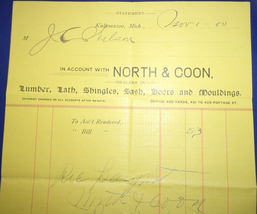 STATEMENT.
Kalamazoo, Mich., Nov 1 00
M J. C. Wilson
IN ACCOUNT WITH NORTH & COON,
DEALERS IN
Lumber, Lath, Shingles, Sash, Doors and Mouldings.
INTEREST CHARGED ON ALL ACCOUNTS AFTER 30 DAYS. OFFICE AND YARDS, 431 TO 425 PORTAGE ST.
To Acc't Rendered,
" Bill
North & Coon